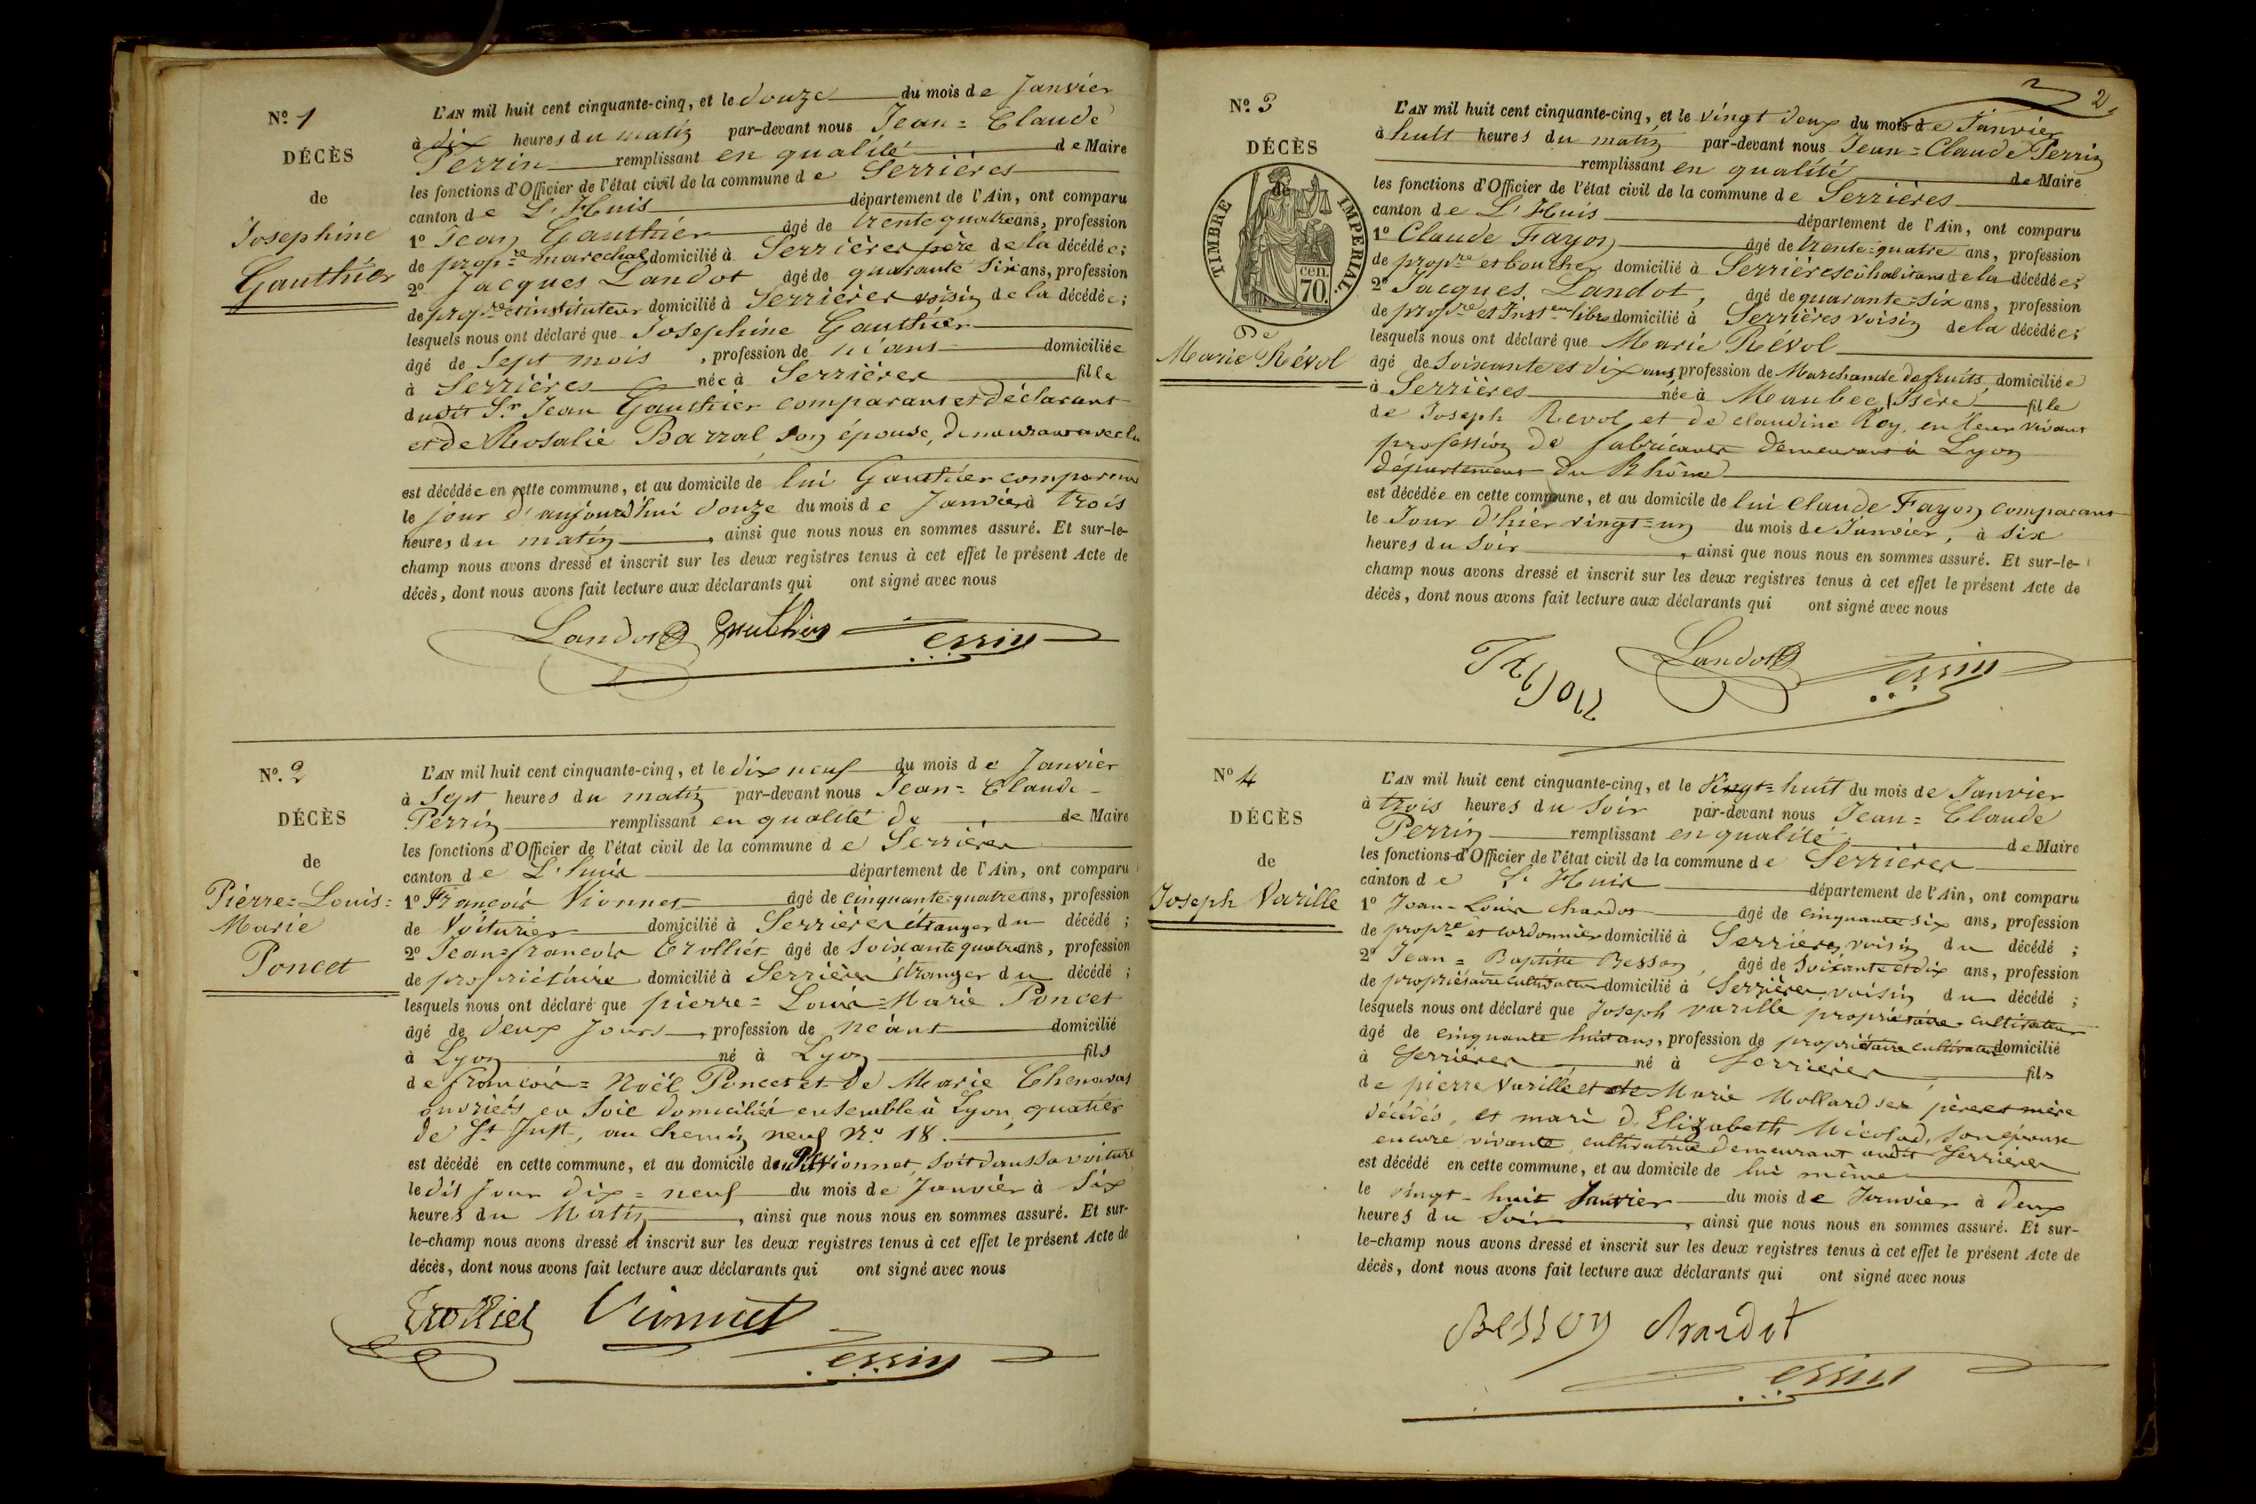 Nº 1
DÉCÈS
de
Josephine
Gauthier
L'AN mil huit cent cinquante-cinq, et le douze du mois de Janvier
à dix heures du matin par-devant nous Jean=Claude
Perrin remplissant en qualité de Maire
les fonctions d'Officier de l'état civil de la commune de Serrières
canton de L'Huis département de l'Ain, ont comparu
1º Jean Gauthier âgé de trente quatre ans, profession
de propre marechal domicilié à Serrières père de la décédée;
2º Jacques Landot âgé de quarante six ans, profession
de propre et instituteur domicilié à Serrières voisin de la décédée;
lesquels nous ont déclaré que Josephine Gauthier
âgé de Sept mois, profession de néant domiciliée
à Serrières née à Serrières fille
dudit Sr Jean Gauthier comparant et déclarant
et de Rosalie Barral son épouse, demeurant avec lui
est décédée en cette commune, et au domicile de lui Gauthier comparant
le jour d'aujourd'hui douze du mois de Janvier à trois
heures du matin, ainsi que nous nous en sommes assuré. Et sur-le-
champ nous avons dressé et inscrit sur les deux registres tenus à cet effet le présent Acte de
décès, dont nous avons fait lecture aux déclarants qui ont signé avec nous
Landot Gauthier Perrin
Nº. 2
DÉCÈS
de
Pierre=Louis=
Marie
Poncet
L'AN mil huit cent cinquante-cinq, et le dix neuf du mois de Janvier
à Sept heures du matin par-devant nous Jean=Claude
Perrin remplissant en qualité de de Maire
les fonctions d'Officier de l'état civil de la commune de Serrières
canton de L'huis département de l'Ain, ont comparu
1º François Vionnet âgé de cinquante=quatre ans, profession
de Voiturier domicilié à Serrières étranger du décédé;
2º Jean=françois Trolliet âgé de soixante quatre ans, profession
de propriétaire domicilié à Serrières étranger du décédé;
lesquels nous ont déclaré que pierre=Louis=Marie Poncet
âgé de deux Jours, profession de néant domicilié
à Lyon né à Lyon fils
de françois=Noël Poncet et de Marie Chenavas
ouvriers en Soie domiciliés ensemble à Lyon, quartier
de St Just, au chemin neuf Nº 18.
est décédé en cette commune, et au domicile du dit Vionnet, soit dans sa voiture
le dit jour dix=neuf du mois de Janvier à Six
heures du Matin, ainsi que nous nous en sommes assuré. Et sur-
le-champ nous avons dressé et inscrit sur les deux registres tenus à cet effet le présent Acte de
décès, dont nous avons fait lecture aux déclarants qui ont signé avec nous
Trolliet Vionnet Perrin
2
Nº 3
DÉCÈS
de
TIMBRE IMPÉRIAL
cen.
70.
De
Marie Révol
L'AN mil huit cent cinquante-cinq, et le vingt deux du mois de Janvier
à huit heures du matin par-devant nous Jean=Claude Perrin
remplissant en qualité de Maire
les fonctions d'Officier de l'état civil de la commune de Serrières
canton de L'Huis département de l'Ain, ont comparu
1º Claude Fayon âgé de trente=quatre ans, profession
de propre et boucher domicilié à Serrières cohabitant de la décédée;
2º Jacques Landot, âgé de quarante=six ans, profession
de propre et Instteur libre domicilié à Serrières voisin de la décédée;
lesquels nous ont déclaré que Marie Révol
âgé de soixante et dix ans, profession de Marchande de fruits, domiciliée
à Serrières née à Maubec (Isère) fille
de Joseph Revol et de claudine Rey, en leur vivant
profession de fabricants demeurant à Lyon
département du Rhône
est décédée en cette commune, et au domicile de lui Claude Fayon comparant
le Jour d'hier vingt=un du mois de Janvier, à six
heures du Soir, ainsi que nous nous en sommes assuré. Et sur-le-
champ nous avons dressé et inscrit sur les deux registres tenus à cet effet le présent Acte de
décès, dont nous avons fait lecture aux déclarants qui ont signé avec nous
Landot Perrin
Nº 4
DÉCÈS
de
Joseph Varille
L'AN mil huit cent cinquante-cinq, et le Vingt=huit du mois de Janvier
à trois heures du Soir par-devant nous Jean=Claude
Perrin remplissant en qualité de Maire
les fonctions d'Officier de l'état civil de la commune de Serrières
canton de L'Huis département de l'Ain, ont comparu
1º Jean-Louis chardot âgé de cinquante six ans, profession
de propre et cordonnier domicilié à Serrières, voisin du décédé;
2º Jean=Baptiste Besson, âgé de soixante et dix ans, profession
de propriétaire cultivateur domicilié à Serrières, voisin du décédé;
lesquels nous ont déclaré que Joseph varille propriétaire cultivateur
âgé de cinquante huit ans, profession de propriétaire cultivateur domicilié
à Serrières né à Serrières fils
de pierre Varille et de Marie Mollard ses père et mère
décédés, et mari d'Elizabeth Nicolod, son épouse
encore vivante, cultivatrice demeurant audit Serrières
est décédé en cette commune, et au domicile de lui même
le vingt-huit Janvier du mois de Janvier à deux
heures du Soir, ainsi que nous nous en sommes assuré. Et sur-
le-champ nous avons dressé et inscrit sur les deux registres tenus à cet effet le présent Acte de
décès, dont nous avons fait lecture aux déclarants qui ont signé avec nous
Besson Chardot
Perrin